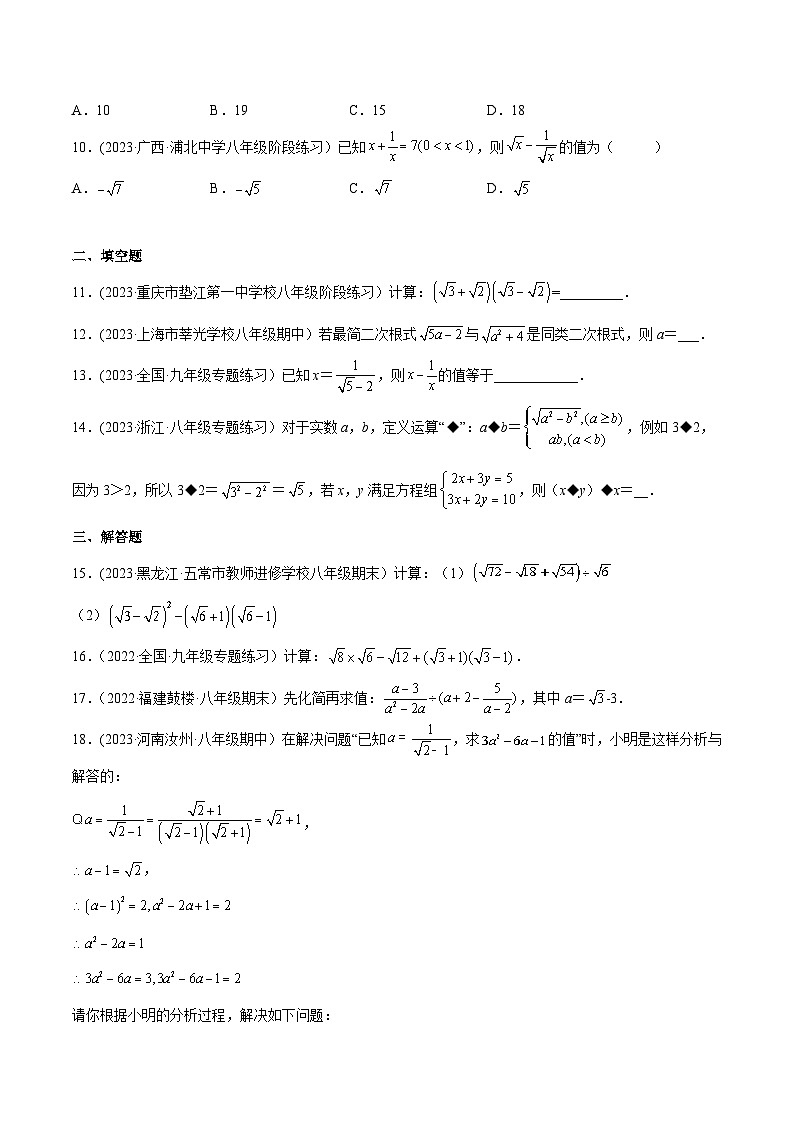 A．10 B．19 C．15 D．18
10．(2023·广西·浦北中学八年级阶段练习）已知 $x+\frac{1}{x}=7(0<x<1)$，则 $\sqrt{x}-\frac{1}{\sqrt{x}}$ 的值为（ ）
A．$-\sqrt{7}$ B．$-\sqrt{5}$ C．$\sqrt{7}$ D．$\sqrt{5}$
二、填空题
11．(2023·重庆市垫江第一中学校八年级阶段练习）计算：$(\sqrt{3}+\sqrt{2})(\sqrt{3}-\sqrt{2})$=_________．
12．(2023·上海市莘光学校八年级期中）若最简二次根式 $\sqrt{5a-2}$ 与 $\sqrt{a^2+4}$ 是同类二次根式，则 a＝___．
13．(2023·全国·九年级专题练习）已知 x＝$\frac{1}{\sqrt{5}-2}$，则 $x-\frac{1}{x}$ 的值等于____________．
14．(2023·浙江·八年级专题练习）对于实数 a，b，定义运算“◆”：a◆b＝$\begin{cases}\sqrt{a^2-b^2},(a\ge b)\\ab,(a<b)\end{cases}$，例如 3◆2，
因为 3＞2，所以 3◆2＝$\sqrt{3^2-2^2}$＝$\sqrt{5}$，若 x，y 满足方程组 $\begin{cases}2x+3y=5\\3x+2y=10\end{cases}$，则（x◆y）◆x＝__．
三、解答题
15．(2023·黑龙江·五常市教师进修学校八年级期末）计算：（1）$(\sqrt{72}-\sqrt{18}+\sqrt{54})\div\sqrt{6}$
（2）$(\sqrt{3}-\sqrt{2})^2-(\sqrt{6}+1)(\sqrt{6}-1)$
16．（2022·全国·九年级专题练习）计算：$\sqrt{8}\times\sqrt{6}-\sqrt{12}+(\sqrt{3}+1)(\sqrt{3}-1)$．
17．（2022·福建鼓楼·八年级期末）先化简再求值：$\frac{a-3}{a^2-2a}\div(a+2-\frac{5}{a-2})$，其中 a＝$\sqrt{3}$-3．
18．(2023·河南汝州·八年级期中）在解决问题“已知 $a=\frac{1}{\sqrt{2}-1}$，求 $3a^2-6a-1$ 的值”时，小明是这样分析与
解答的：
Q $a=\frac{1}{\sqrt{2}-1}=\frac{\sqrt{2}+1}{(\sqrt{2}-1)(\sqrt{2}+1)}=\sqrt{2}+1$，
∴ $a-1=\sqrt{2}$，
∴ $(a-1)^2=2,a^2-2a+1=2$
∴ $a^2-2a=1$
∴ $3a^2-6a=3,3a^2-6a-1=2$
请你根据小明的分析过程，解决如下问题：